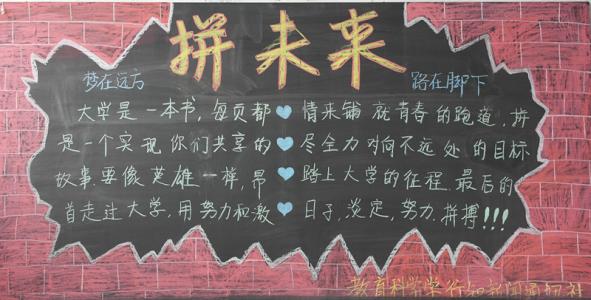 拼未来
梦在远方
路在脚下
大学是一本书,每页都
是一个实现你们共享的
故事.要像英雄一样,昂
首走过大学,用努力和激
情来铺就青春的跑道,拼
尽全力对向不远处的目标
踏上大学的征程.最后的
日子,淡定,努力,拼搏!!!
教育科学学行知新闻通讯社